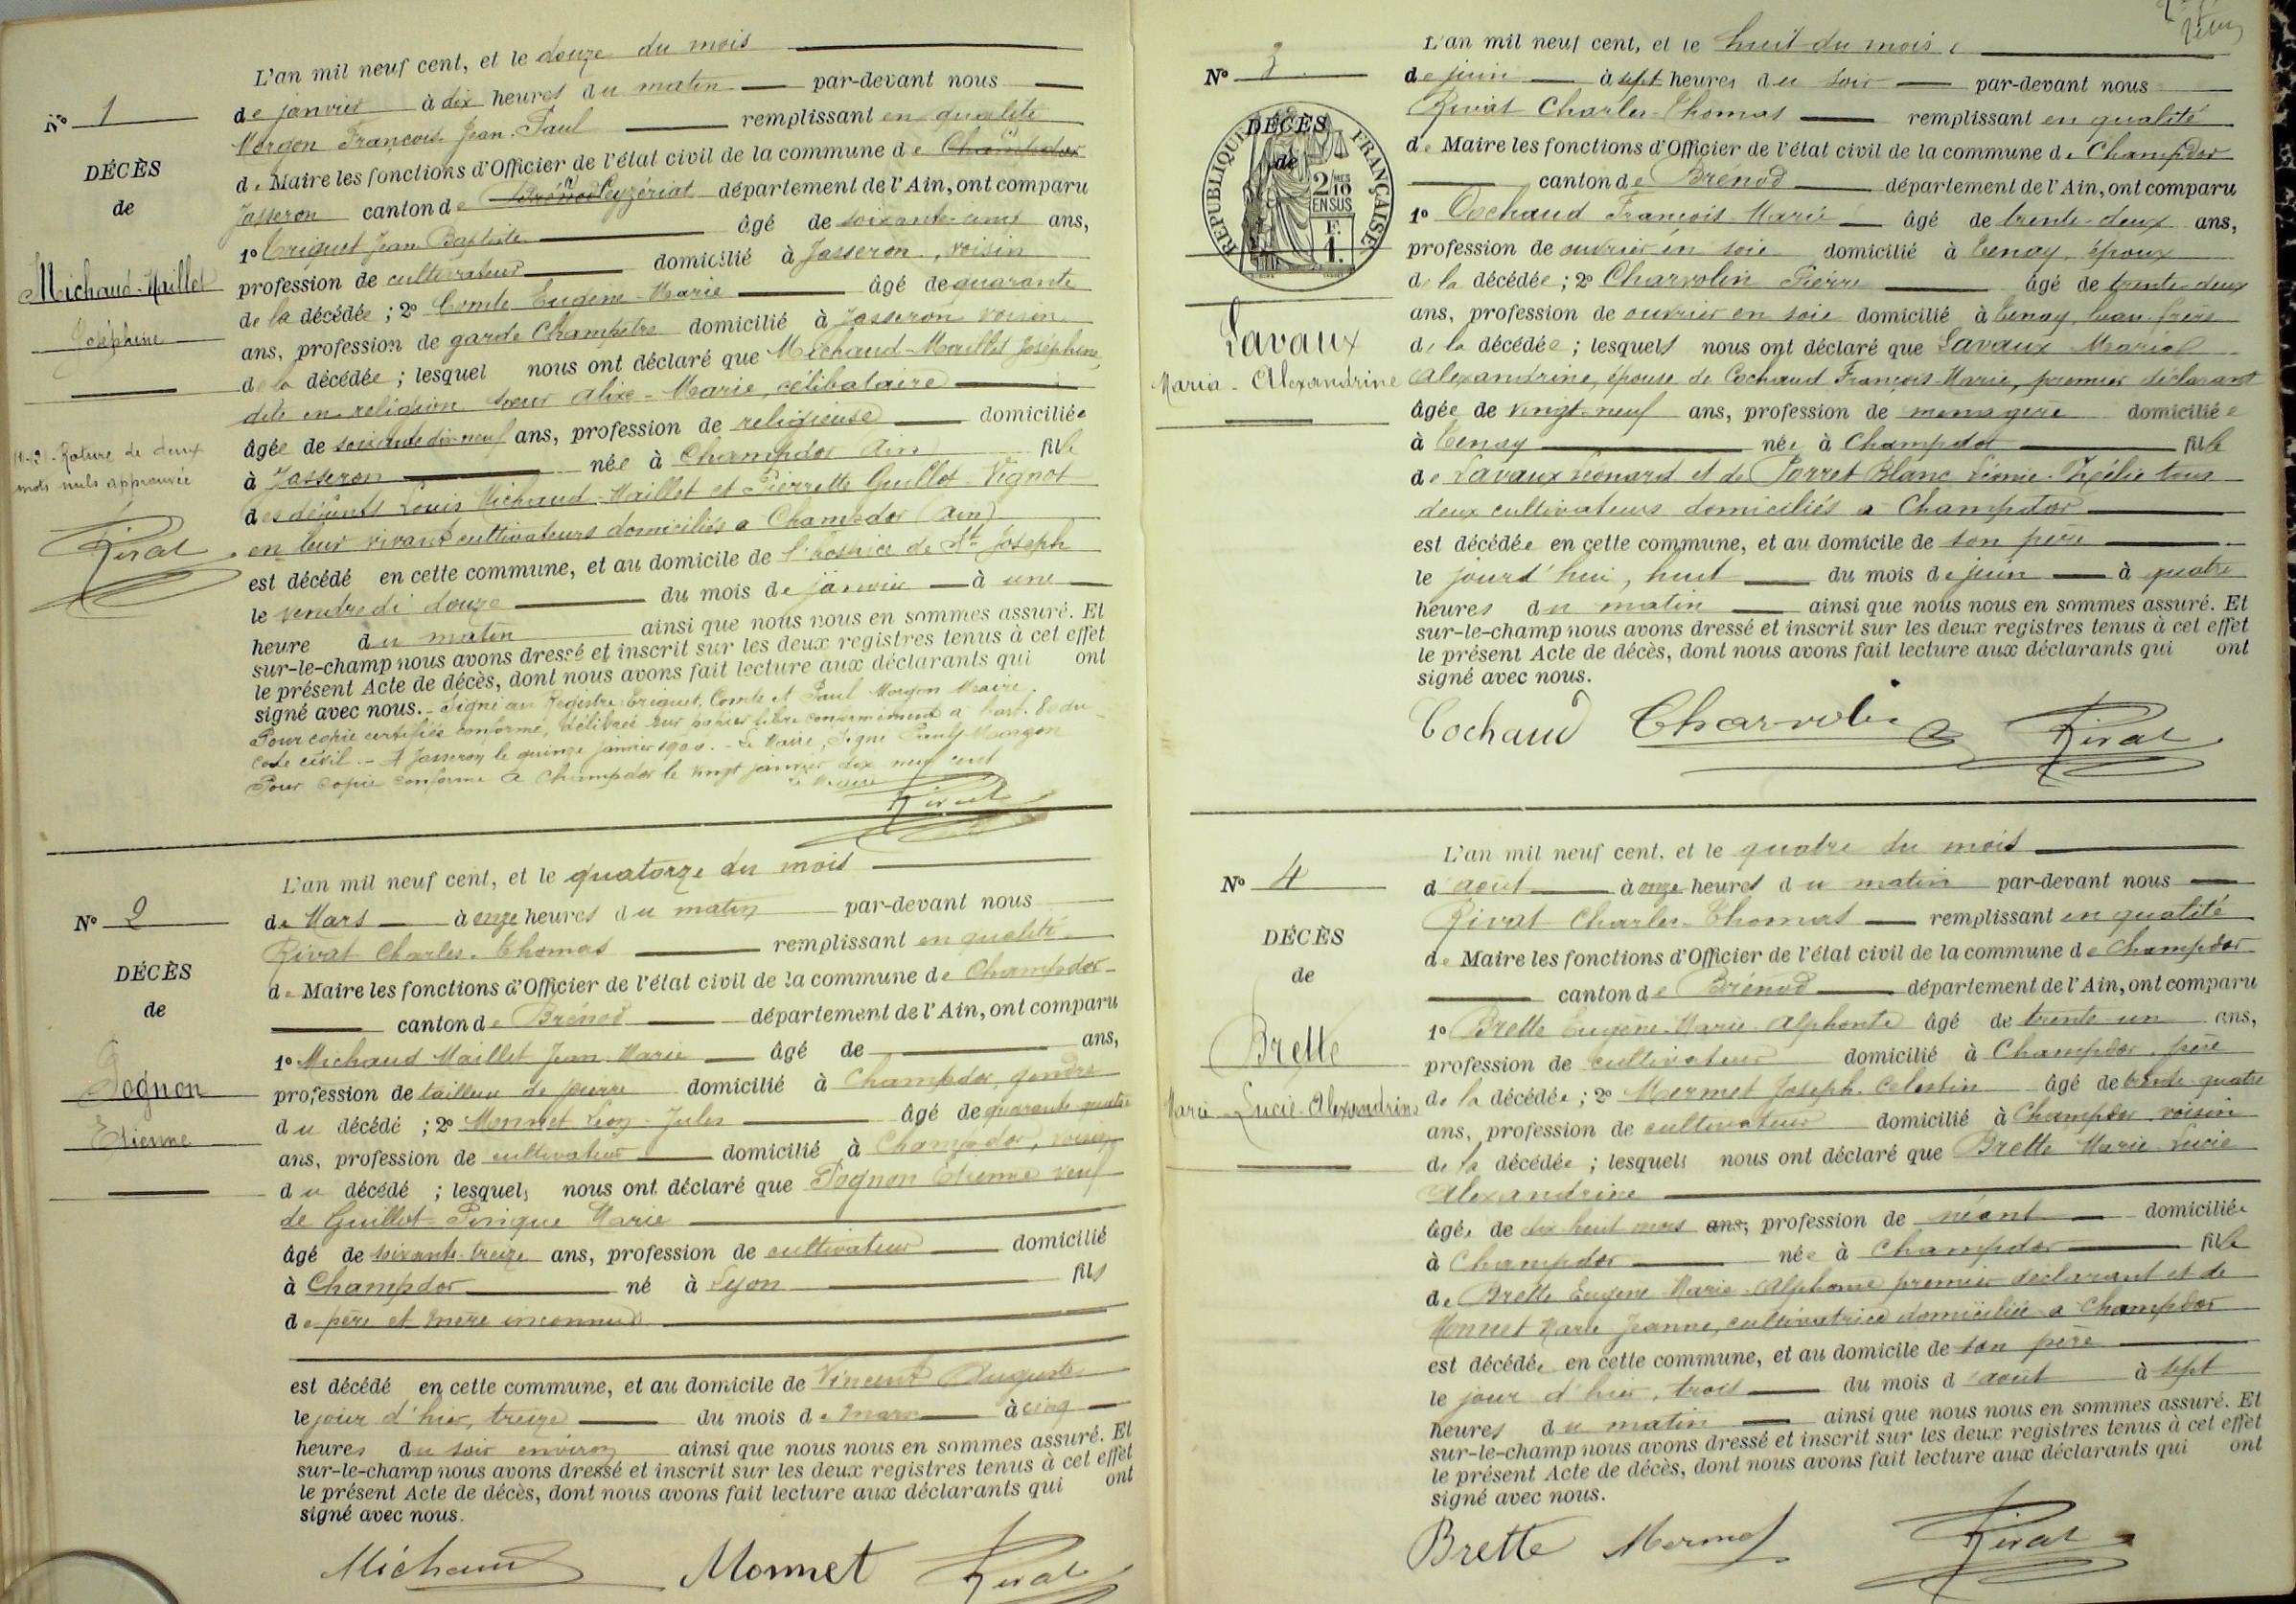 N° 1
DÉCÈS
de
Michaud-Maillet
Joséphine
Rature de deux
mots nuls approuvée
Rivat
L'an mil neuf cent, et le douze du mois
de janvier à dix heures du matin par-devant nous
Morgon François Jean-Paul remplissant en qualité
de Maire les fonctions d'Officier de l'état civil de la commune de Champdor
Jasseron canton de Brénod Ceyzériat département de l'Ain, ont comparu
1° Criquet Jean Baptiste âgé de soixante-cinq ans,
profession de cultivateur domicilié à Jasseron, voisin
de la décédée ; 2° Comte Eugène-Marie âgé de quarante
ans, profession de garde Champêtre domicilié à Jasseron voisin
de la décédée ; lesquel nous ont déclaré que Michaud-Maillet Joséphine
dite en religion soeur Alixe-Marie, célibataire
âgée de soixante dix-neuf ans, profession de religieuse domiciliée
à Jasseron née à Champdor Ain fille
des défunts Louis Michaud-Maillet et Pierrette Guillot-Vignot
en leur vivant cultivateurs domiciliés a Champdor (Ain)
est décédé en cette commune, et au domicile de l'hospice de St Joseph
le vendredi douze du mois de janvier à une
heure du matin ainsi que nous nous en sommes assuré. Et
sur-le-champ nous avons dressé et inscrit sur les deux registres tenus à cet effet
le présent Acte de décès, dont nous avons fait lecture aux déclarants qui ont
signé avec nous. - Signé au Registre: Criquet, Comte et Paul Morgon Maire.
Pour copie certifiée conforme, délibrée sur papier libre conformément a l'art. 80 du
code civil. - A Jasseron le quinze janvier 1900. - Le Maire, Signé Paul Morgon
Pour copie conforme a Champdor le vingt janvier dix neuf cent
Le Maire
Rivat
N° 2
DÉCÈS
de
Pognon
Etienne
L'an mil neuf cent, et le quatorze du mois
de Mars à onze heures du matin par-devant nous
Rivat Charles-Thomas remplissant en qualité
de Maire les fonctions d'Officier de l'état civil de la commune de Champdor
canton de Brénod département de l'Ain, ont comparu
1° Michaud Maillet Jean-Marie âgé de ans,
profession de tailleur de pierre domicilié à Champdor, gendre
du décédé ; 2° Monnet Léon-Jules âgé de quarante-quatre
ans, profession de cultivateur domicilié à Champdor, voisin
du décédé ; lesquels nous ont déclaré que Pognon Etienne veuf
de Guillot-Pingue Marie
âgé de soixante-treize ans, profession de cultivateur domicilié
à Champdor né à Lyon fils
de père et mère inconnus
est décédé en cette commune, et au domicile de Vincent Auguste
le jour d'hier, treize du mois de mars à cinq
heures du soir environ ainsi que nous nous en sommes assuré. Et
sur-le-champ nous avons dressé et inscrit sur les deux registres tenus à cet effet
le présent Acte de décès, dont nous avons fait lecture aux déclarants qui ont
signé avec nous.
Michaud Monnet Rivat
N° 3
RÉPUBLIQUE FRANÇAISE
2/10 EN SUS
1 F.
DÉCÈS
de
Lavaux
Maria-Alexandrine
L'an mil neuf cent, et le huit du mois
de juin à sept heures du soir par-devant nous
Rivat Charles-Thomas remplissant en qualité
de Maire les fonctions d'Officier de l'état civil de la commune de Champdor
canton de Brénod département de l'Ain, ont comparu
1° Cochaud François-Marie âgé de trente-deux ans,
profession de ouvrier en soie domicilié à Tenay, époux
de la décédée ; 2° Charvolin Pierre âgé de trente-deux
ans, profession de ouvrier en soie domicilié à Tenay, beau-frère
de la décédée ; lesquels nous ont déclaré que Lavaux Maria
Alexandrine, épouse de Cochaud François-Marie, premier déclarant
âgée de vingt-neuf ans, profession de ménagère domiciliée
à Tenay née à Champdor fille
de Lavaux Léonard et de Porret Blanc Léonie-Zoélie tous
deux cultivateurs domiciliés a Champdor
est décédée en cette commune, et au domicile de son père
le jourd'hui, huit du mois de juin à quatre
heures du matin ainsi que nous nous en sommes assuré. Et
sur-le-champ nous avons dressé et inscrit sur les deux registres tenus à cet effet
le présent Acte de décès, dont nous avons fait lecture aux déclarants qui ont
signé avec nous.
Cochaud Charvolin Rivat
N° 4
DÉCÈS
de
Brette
Marie-Lucie-Alexandrine
L'an mil neuf cent, et le quatre du mois
d'août à onze heures du matin par-devant nous
Rivat Charles-Thomas remplissant en qualité
de Maire les fonctions d'Officier de l'état civil de la commune de Champdor
canton de Brénod département de l'Ain, ont comparu
1° Brette Eugène-Marie-Alphonse âgé de trente-un ans,
profession de cultivateur domicilié à Champdor, père
de la décédée ; 2° Mermet Joseph-Celestin âgé de trente-quatre
ans, profession de cultivateur domicilié à Champdor voisin
de la décédée ; lesquels nous ont déclaré que Brette Marie-Lucie
Alexandrine
âgée de dix huit mois ans, profession de néant domiciliée
à Champdor née à Champdor fille
de Brette Eugène-Marie-Alphonse premier déclarant et de
Monnet Marie-Jeanne, cultivatrice domiciliée a Champdor
est décédée en cette commune, et au domicile de son père
le jour d'hier, trois du mois d'août à sept
heures du matin ainsi que nous nous en sommes assuré. Et
sur-le-champ nous avons dressé et inscrit sur les deux registres tenus à cet effet
le présent Acte de décès, dont nous avons fait lecture aux déclarants qui ont
signé avec nous.
Brette Mermet Rivat